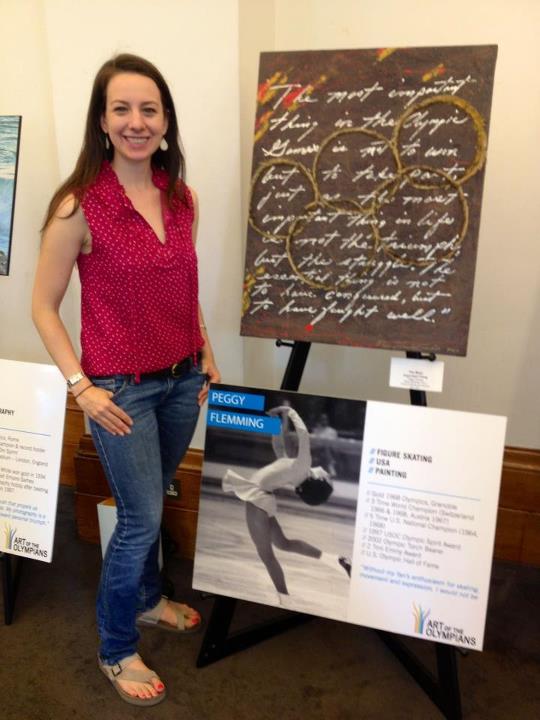 The most important
thing in the Olympic
Games is not to win
but to take part,
just as the most
important thing in life
is not the triumph
but the struggle. The
essential thing is not
to have conquered, but
to have fought well."
PEGGY
FLEMMING
# FIGURE SKATING
# USA
# PAINTING
// Gold 1968 Olympics, Grenoble
// 3 Time World Champion (Switzerland
1966 & 1968, Austria 1967)
// 5 Time U.S. National Champion (1964,
1968)
// 1997 USOC Olympic Spirit Award
// 2002 Olympic Torch Bearer
// 2 Time Emmy Award
// U.S. Olympic Hall of Fame
"Without my fan's enthusiasm for skating,
movement and expression, I would not be
ART OF THE
OLYMPIANS
RAPHY
Rome
London, England
ART OF THE
OLYMPIANS